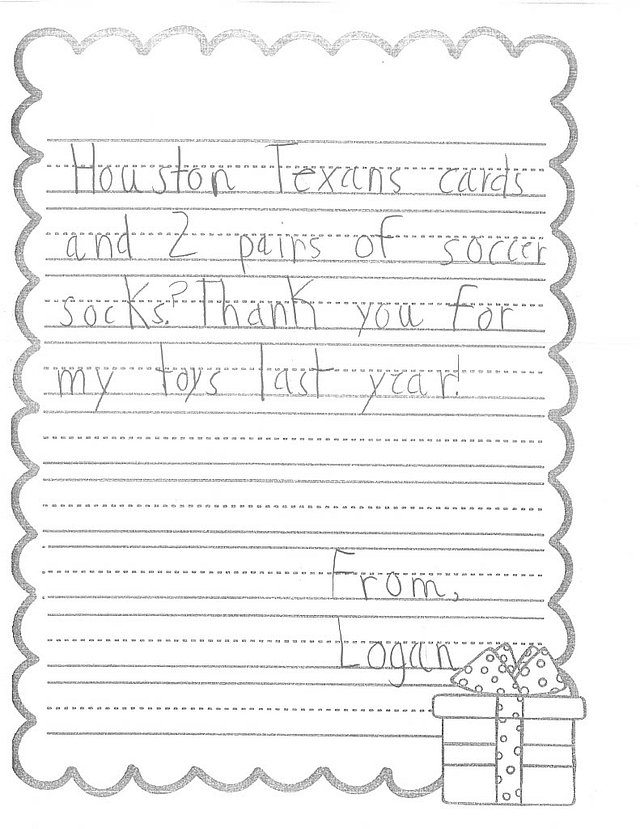 Houston Texans cards
and 2 pairs of soccer
socks.? Thank you for
my toys last year!
From,
Logan